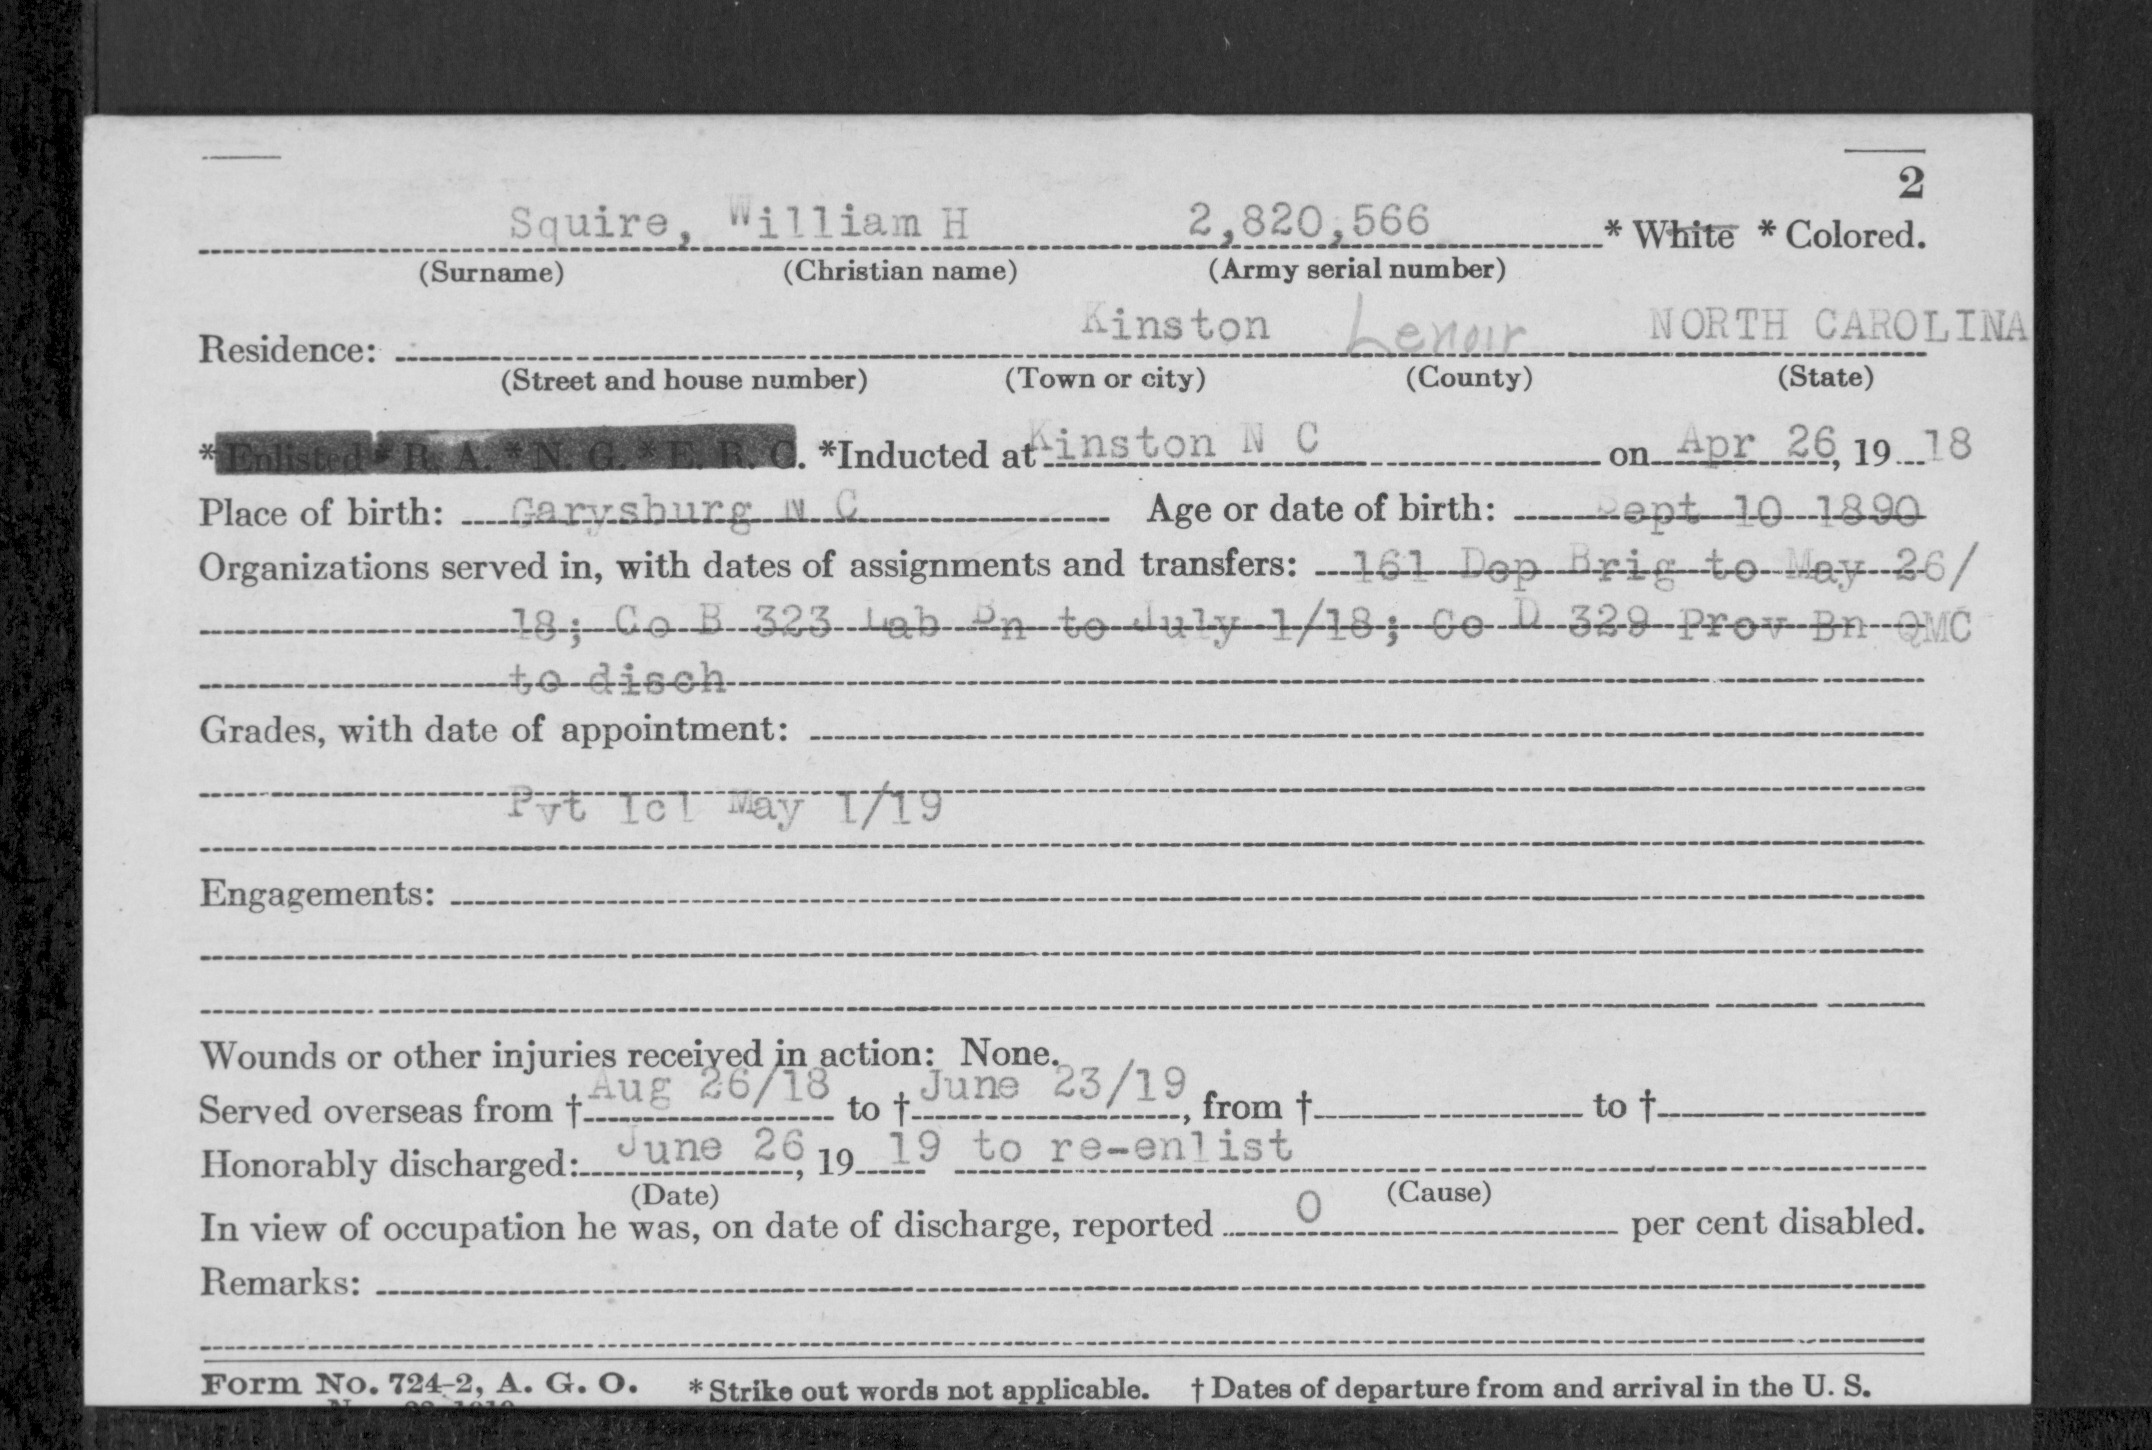 2
Squire, William H 2,820,566 * White * Colored.
(Surname) (Christian name) (Army serial number)
Residence: Kinston Lenoir NORTH CAROLINA
(Street and house number) (Town or city) (County) (State)
*Enlisted * R. A. * N. G. * E. R. C. *Inducted at Kinston N C on Apr 26, 19 18
Place of birth: Garysburg N C Age or date of birth: Sept 10 1890
Organizations served in, with dates of assignments and transfers: 161 Dep Brig to May 26/
18; Co B 323 Lab Bn to July 1/18; Co D 329 Prov Bn QMC
to disch
Grades, with date of appointment:
Pvt 1cl May 1/19
Engagements:
Wounds or other injuries received in action: None.
Served overseas from † Aug 26/18 to † June 23/19, from † to †
Honorably discharged: June 26, 19 19 to re-enlist
(Date) (Cause)
In view of occupation he was, on date of discharge, reported 0 per cent disabled.
Remarks:
Form No. 724-2, A. G. O. * Strike out words not applicable. † Dates of departure from and arrival in the U. S.